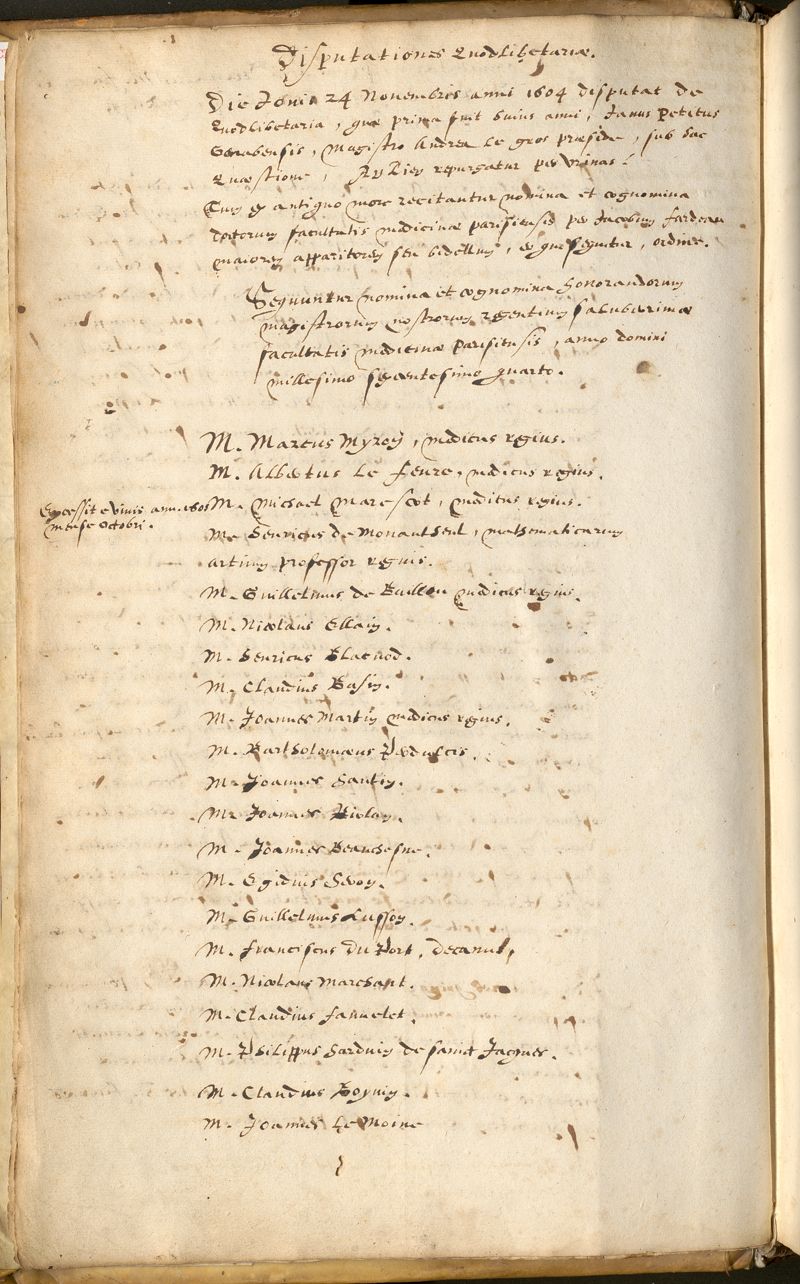 Disputationes Quodlibetariæ.
Die Jovis 24 Novembris anni 1604 disputat de
Quodlibetaria, quæ prima fuit huius anni, Janus Petitus
magistro Andrea Le gros præside, sub hac
Quæstione, An Lien repurgatur per urinas.
Tum ex antiquo more recitantur nomina et cognomina
doctorum facultatis medicinæ parisiensis per Jacobum fardeau
maiorem apparitorem seu bidellum, eo quo sequitur, ordine.
Sequuntur nomina et cognomina honorandorum
magistrorum nostrorum regentium saluberrimæ
facultatis medicinæ parisiensis, anno domini
millesimo sexcentesimo quarto.
M. Marcus Myron, medicus regius.
M. Albertus Le fevre, medicus regius.
Excessit e vivis ann. 1605
mense octobri.
M. Michael Marescot, medicus regius.
M. Henricus de Monantheul, mathematicarum
artium professor regius.
M. Guillelmus de Baillou medicus regius.
M. Nicolaus Ellain.
M. Henricus Blacuod.
M. Claudius Basin.
M. Joannes Martin medicus regius.
M. Bartholomæus Perdulcis.
M. Joannes Hautin.
M. Joannes Riolan.
M. Joannes Beauchesne.
M. Egidius Heron.
M. Guillelmus Lusson.
M. franciscus Du Port, decanus,
M. Nicolaus Marchant.
M. Claudius fauvelet.
M. Philippus Harduin de sainct Jacques.
M. Claudius
M. Joannes Le Moine